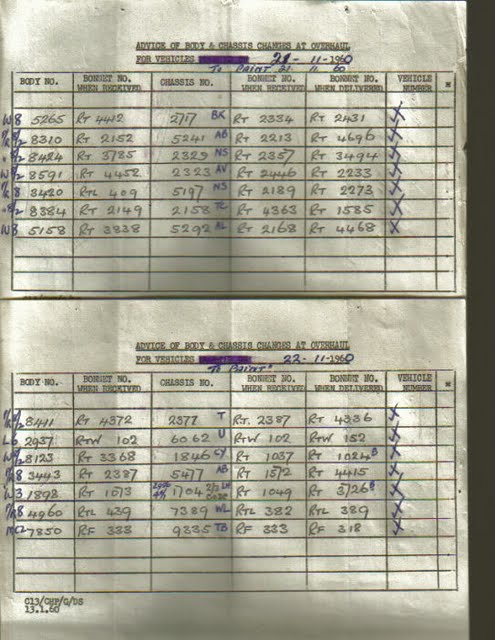 ADVICE OF BODY & CHASSIS CHANGES AT OVERHAUL
FOR VEHICLES 21-11-1960
To PAINT 21 11 60
BODY NO. BONNET NO. WHEN RECEIVED CHASSIS NO. BONNET NO. WHEN RECEIVED BONNET NO. WHEN DELIVERED VEHICLE NUMBER
W8 5265 RT 4412 2717 BK RT 2334 RT 2431 X
8310 RT 2152 5241 AB RT 2213 RT 4696 X
8424 RT 3785 2329 NS RT 2357 RT 3494 X
8591 RT 4452 2323 AV RT 2446 RT 2233 X
8 3420 RTL 409 5197 NS RT 2189 RT 2273 X
8384 RT 2149 2158 TL RT 4363 RT 1585 X
W8 5158 RT 3838 5292 AL RT 2168 RT 4468 X
ADVICE OF BODY & CHASSIS CHANGES AT OVERHAUL
FOR VEHICLES 22-11-1960
"To PAINT"
BODY NO. BONNET NO. WHEN RECEIVED CHASSIS NO. BONNET NO. WHEN RECEIVED BONNET NO. WHEN DELIVERED VEHICLE NUMBER
8441 RT 4372 2377 T RT. 2387 RT 4336 X
L6 2937 RTW 102 6062 U RTW 102 RTW 152 X
8123 RT 3368 1846 CY RT 1037 RT 1024B X
8 3443 RT 2387 5477 AB RT 1572 RT 4415 X
W3 1898 RT 1073 1704 RT 1049 RT 3726B X
8 4960 RTL 439 7389 WL RTL 382 RTL 389 X
7850 RF 333 9335 TB RF 333 RF 318 X
C13/CHP/G/DS
13.1.60